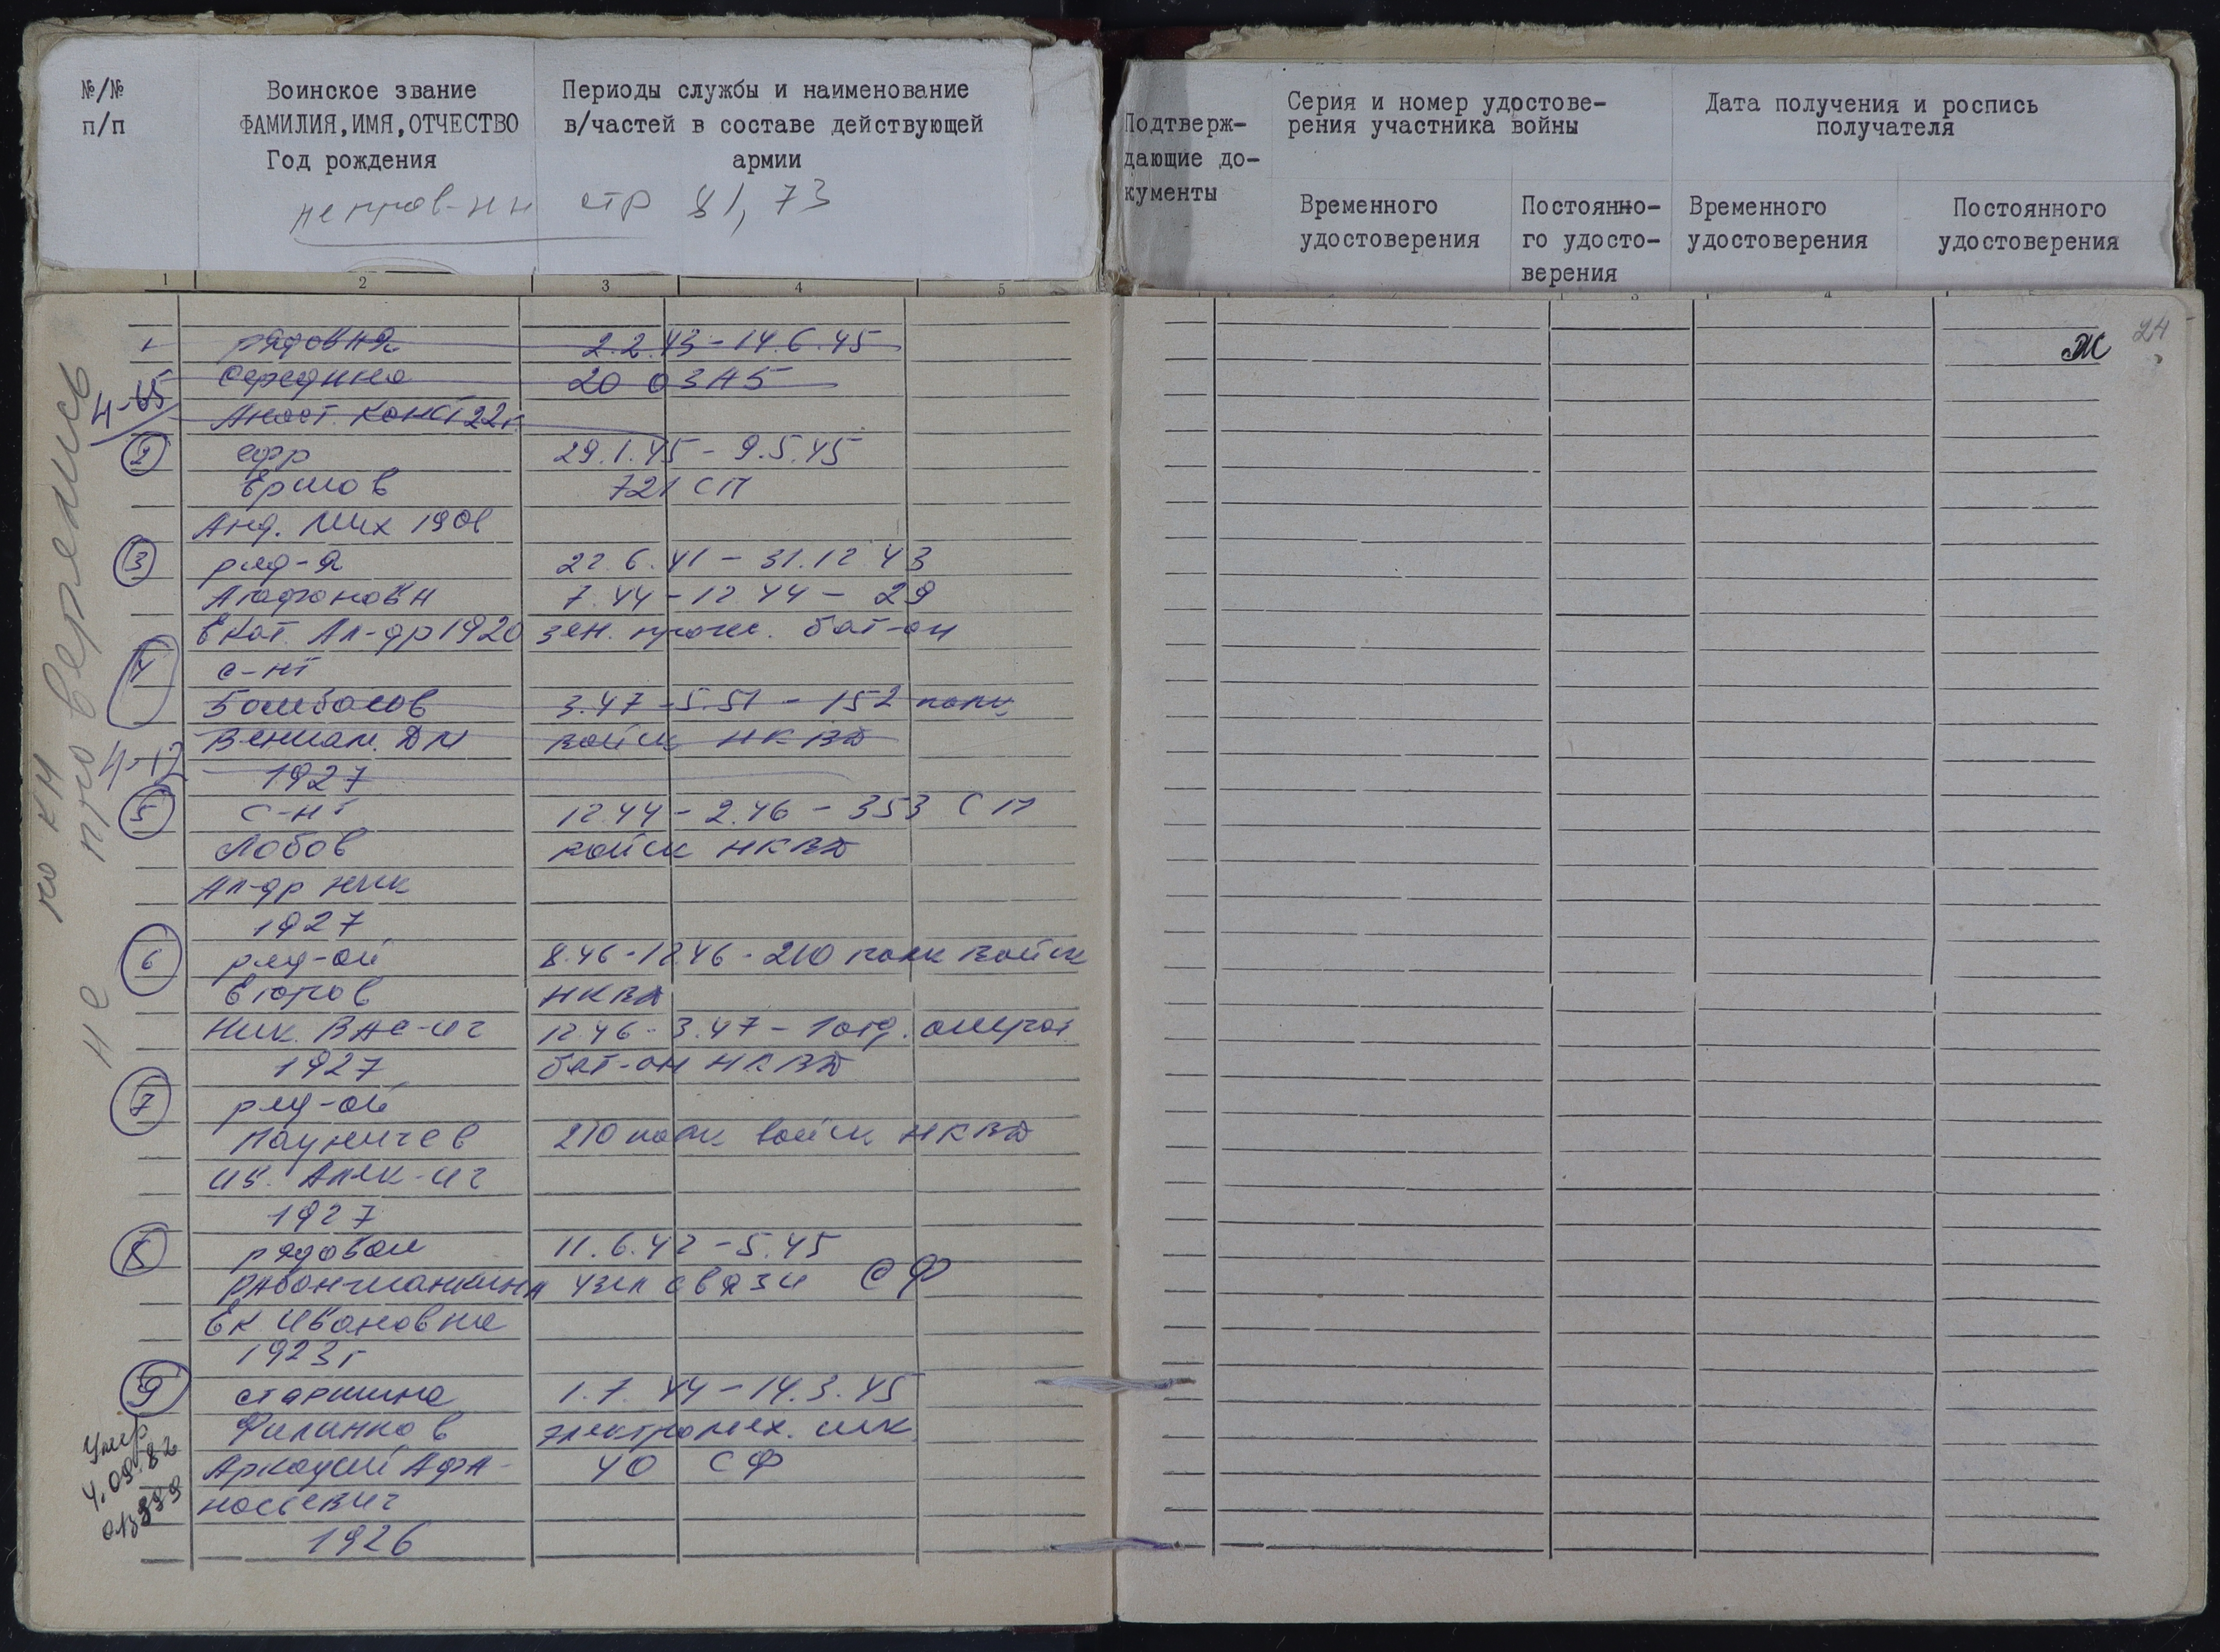 №/№
п/п
Воинское звание
ФАМИЛИЯ,ИМЯ,ОТЧЕСТВО
Год рождения
Периоды службы и наименование
в/частей в составе действующей
армии
стр 81, 73
Подтверж-
дающие до-
кументы
Серия и номер удостове-
рения участника войны
Дата получения и роспись
получателя
Временного
удостоверения
Постоянно-
го удосто-
верения
Временного
удостоверения
Постоянного
удостоверения
1 2 3 4 5
не проверялись
по КМ
1 рядовая 2.2.43-14.6.45
Середина 20 ОЗАБ
4-65
Анаст. Конст 22г.
2 ефр 29.1.45 - 9.5.45
Ершов 721 СП
Анд. Мих
3 ряд-я 22.6.41 - 31.12.43
Агафонова Н 7.44-12.44 - 29
Екат. Ал-др 1920 зен. прож. бат-он
4 с-нт
3.47-5.51 - 152 полк
Вениам. Дм войск НКВД
4-12
1927
5 с-нт 12.44 - 2.46 - 353 СП
Лобов войск НКВД
Ал-др Ник
1927
6 ряд-ой 8.46-12.46 - 210 полк войск
НКВД
Ник. Вас-ич 12.46 - 3.47 - 1 отд.
1927 бат-он НКВД
7 ряд-ой
210 полк войск НКВД
Ив. Алек-ич
1927
8 рядовой 11.6.42 - 5.45
узел связи СФ
Ек Ивановна
1923г
9 старшина 1.7.44 - 14.3.45
Филинков электромех. шк
Аркадий Афа- УО СФ
насьевич
1926
Умер
4.09.82
24